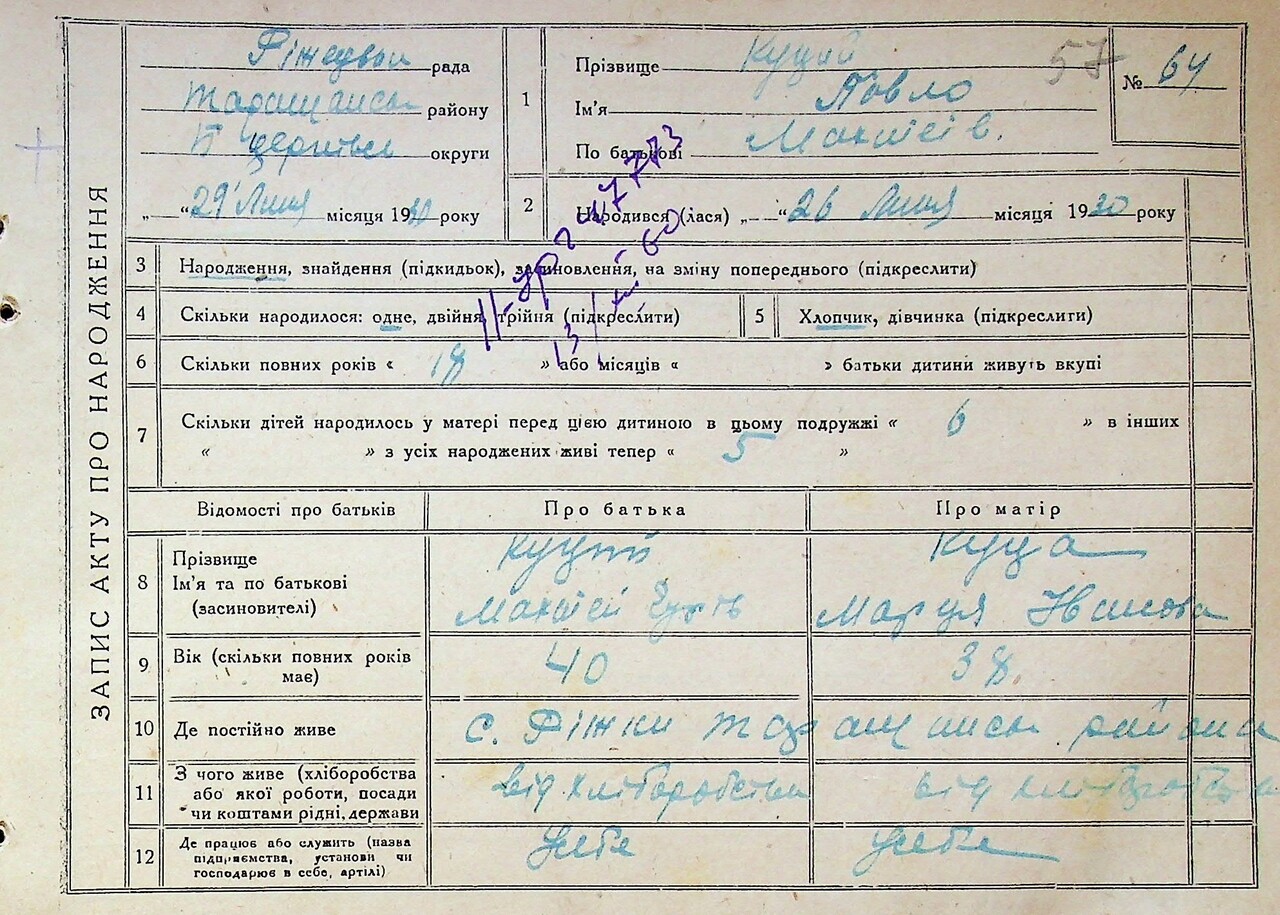 ЗАПИС АКТУ ПРО НАРОДЖЕННЯ
рада
району
округи
„ “29 Липня місяця 1930 року
1
Прізвище Куций
Ім'я Павло
По батькові
57
№ 64
2
Народився (лася) „ “26 Липня місяця 1930 року
3 Народження, знайдення (підкидьок), засиновлення, на зміну попереднього (підкреслити)
4 Скільки народилося: одне, двійня, трійня (підкреслити)
5 Хлопчик, дівчинка (підкреслити)
6 Скільки повних років « 18 » або місяців « » батьки дитини живуть вкупі
7 Скільки дітей народилось у матері перед цією дитиною в цьому подружжі « 6 » в інших
« » з усіх народжених живі тепер « 5 »
Відомості про батьків
Про батька
Про матір
8 Прізвище
Ім'я та по батькові
(засиновителі)
Куций
Куца
Мария Іванова
9 Вік (скільки повних років
має)
40
38
10 Де постійно живе
с. Ріжки
11 З чого живе (хліборобства
або якої роботи, посади
чи коштами рідні, держави
від хліборобства
від хліборобства
12 Де працює або служить (назва
підприємства, установи чи
господарює в себе, артілі)
у себе
у себе